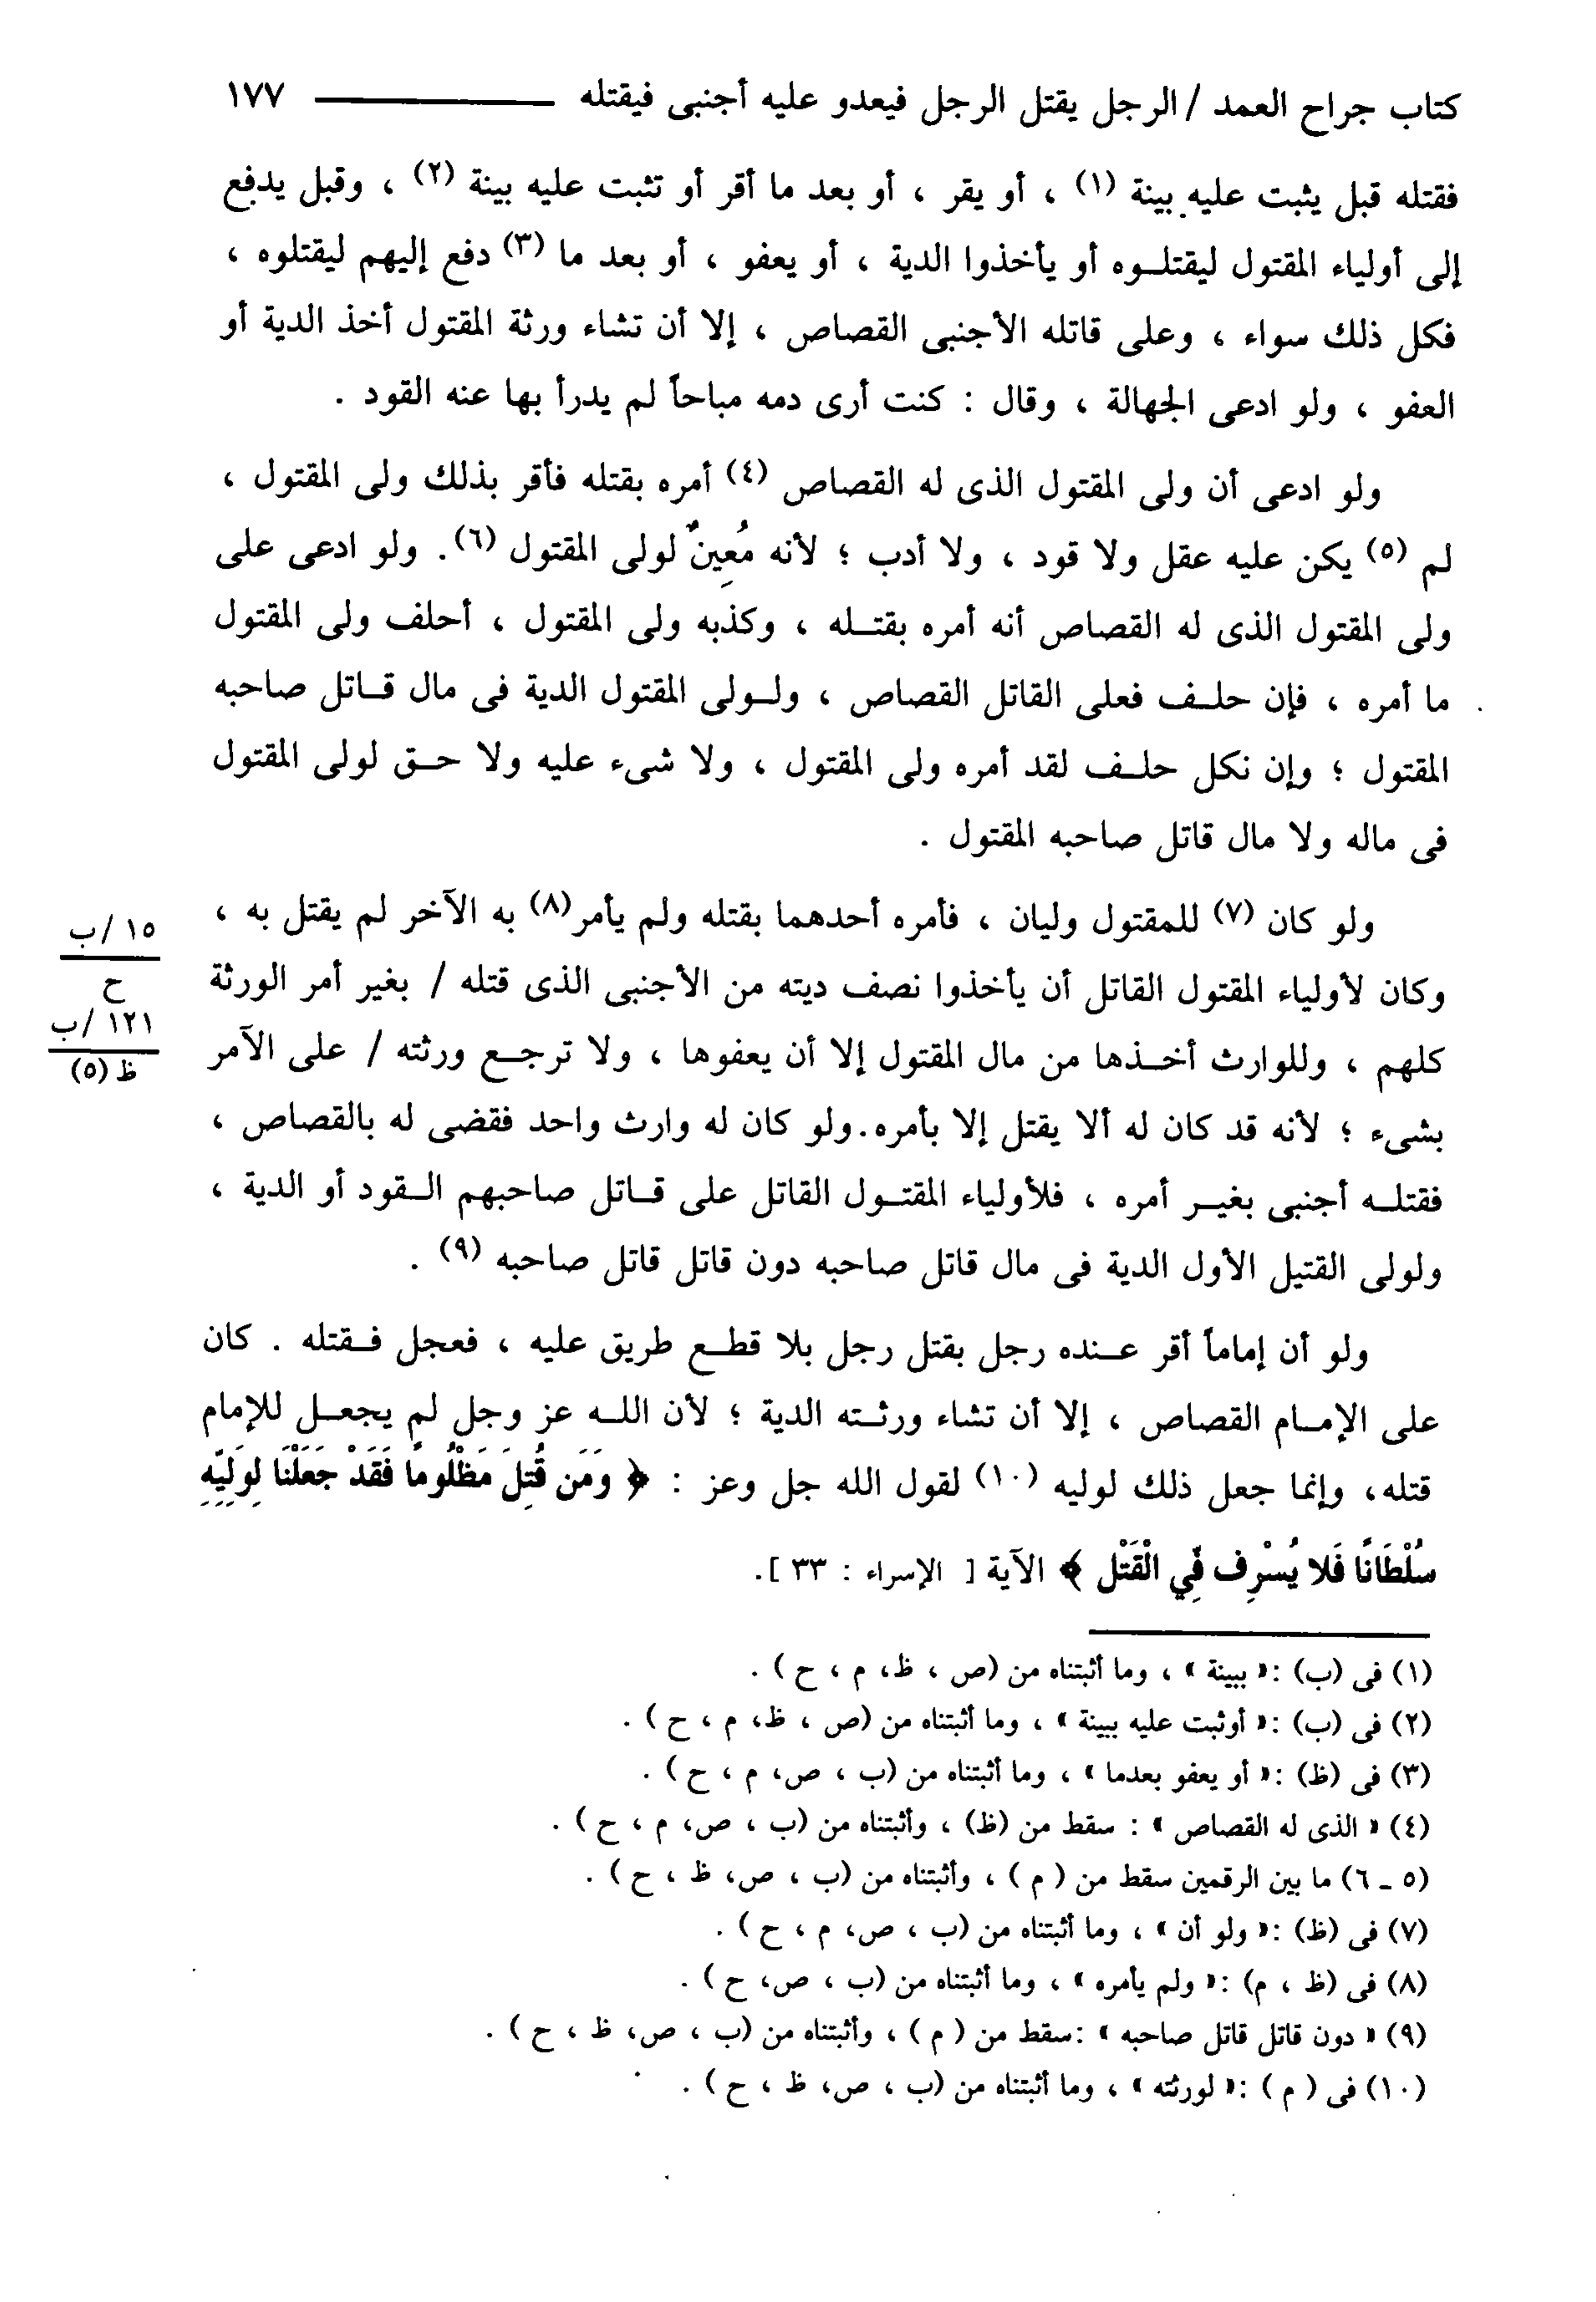 كتاب جراح العمد / الرجل يقتل الرجل فيعدو عليه أجنبى فيقتله ـــــــــ ١٧٧
فقتله قبل يثبت عليه بينة (١) ، أو يقر ، أو بعد ما أقر أو تثبت عليه بينة (٢) ، وقبل يدفع
إلى أولياء المقتول ليقتلـوه أو يأخذوا الدية ، أو يعفو ، أو بعد ما (٣) دفع إليهم ليقتلوه ،
فكل ذلك سواء ، وعلى قاتله الأجنبى القصاص ، إلا أن تشاء ورثة المقتول أخذ الدية أو
العفو ، ولو ادعى الجهالة ، وقال : كنت أرى دمه مباحاً لم يدرأ بها عنه القود .
ولو ادعى أن ولى المقتول الذى له القصاص (٤) أمره بقتله فأقر بذلك ولى المقتول ،
لم (٥) يكن عليه عقل ولا قود ، ولا أدب ؛ لأنه مُعِينٌ لولى المقتول (٦). ولو ادعى على
ولى المقتول الذى له القصاص أنه أمره بقتـله ، وكذبه ولى المقتول ، أحلف ولى المقتول
ما أمره ، فإن حلـف فعلى القاتل القصاص ، ولـولى المقتول الدية فى مال قـاتل صاحبه
المقتول ؛ وإن نكل حلـف لقد أمره ولى المقتول ، ولا شىء عليه ولا حـق لولى المقتول
فى ماله ولا مال قاتل صاحبه المقتول .
ولو كان (٧) للمقتول وليان ، فأمره أحدهما بقتله ولم يأمر(٨) به الآخر لم يقتل به ،
وكان لأولياء المقتول القاتل أن يأخذوا نصف ديته من الأجنبى الذى قتله / بغير أمر الورثة
كلهم ، وللوارث أخـذها من مال المقتول إلا أن يعفوها ، ولا ترجـع ورثته / على الآمر
بشىء ؛ لأنه قد كان له ألا يقتل إلا بأمره.ولو كان له وارث واحد فقضى له بالقصاص ،
فقتلـه أجنبى بغيـر أمره ، فلأولياء المقتـول القاتل على قـاتل صاحبهم الـقود أو الدية ،
ولولى القتيل الأول الدية فى مال قاتل صاحبه دون قاتل قاتل صاحبه (٩) .
١٥ /ب
ح
١٢١ /ب
ظ (٥)
ولو أن إماماً أقر عـنده رجل بقتل رجل بلا قطـع طريق عليه ، فعجل فـقتله . كان
على الإمـام القصاص ، إلا أن تشاء ورثـته الدية ؛ لأن اللـه عز وجل لم يجعـل للإمام
قتله، وإنما جعل ذلك لوليه (١٠) لقول الله جل وعز : ﴿ وَمَن قُتِلَ مَظْلُومًا فَقَدْ جَعَلْنَا لِوَلِيِّهِ
سُلْطَانًا فَلا يُسْرِف فِّي الْقَتْلِ ﴾ الآية [ الإسراء : ٣٣ ].
(١) فى (ب) :« ببينة » ، وما أثبتناه من (ص ، ظ، م ، ح ) .
(٢) فى (ب) :« أوثبت عليه ببينة » ، وما أثبتناه من (ص ، ظ، م ، ح ) .
(٣) فى (ظ) :« أو يعفو بعدما » ، وما أثبتناه من (ب ، ص، م ، ح ) .
(٤) « الذى له القصاص » : سقط من (ظ) ، وأثبتناه من (ب ، ص، م ، ح ) .
(٥ ـ ٦) ما بين الرقمين سقط من ( م ) ، وأثبتناه من (ب ، ص، ظ ، ح ) .
(٧) فى (ظ) :« ولو أن » ، وما أثبتناه من (ب ، ص، م ، ح ) .
(٨) فى (ظ ، م) :« ولم يأمره » ، وما أثبتناه من (ب ، ص، ح ) .
(٩) « دون قاتل قاتل صاحبه » :سقط من ( م ) ، وأثبتناه من (ب ، ص، ظ ، ح ) .
(١٠) فى ( م ) :« لورثته » ، وما أثبتناه من (ب ، ص، ظ ، ح ) .